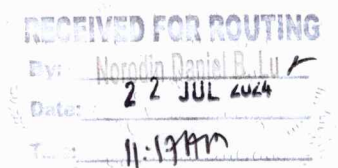 RECEIVED FOR ROUTING
By: Norodin Daniel B. Lu
Date: 22 JUL 2024
T 11:17AM